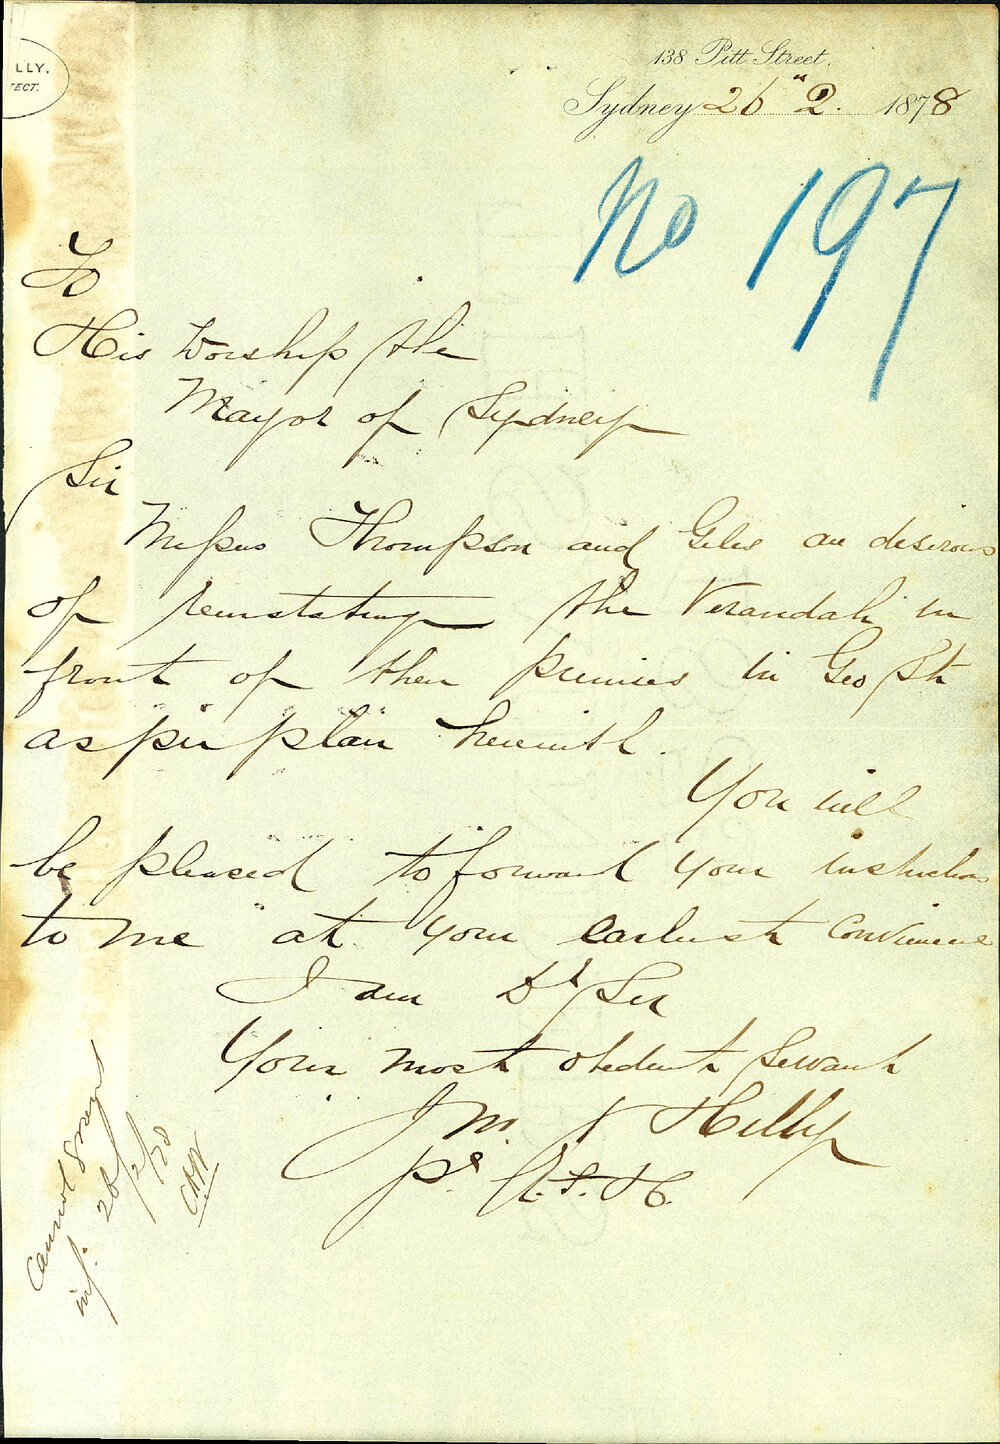 LLY,
TECT.
138 Pitt Street,
Sydney 26" 2. 1878
No 197
To
His Worship the
Mayor of Sydney
Sir
Messrs Thompson and Giles are desirous
of reinstating the Verandah in
front of their premises in Geo St
as per plan herewith.
You will
be pleased to forward your instructions
to me at your earliest Convenience
I am Dr Sir
Your most obedient Servant
J M. Hilly
pr A. F. H.
Cannot
inf. 26/2/78